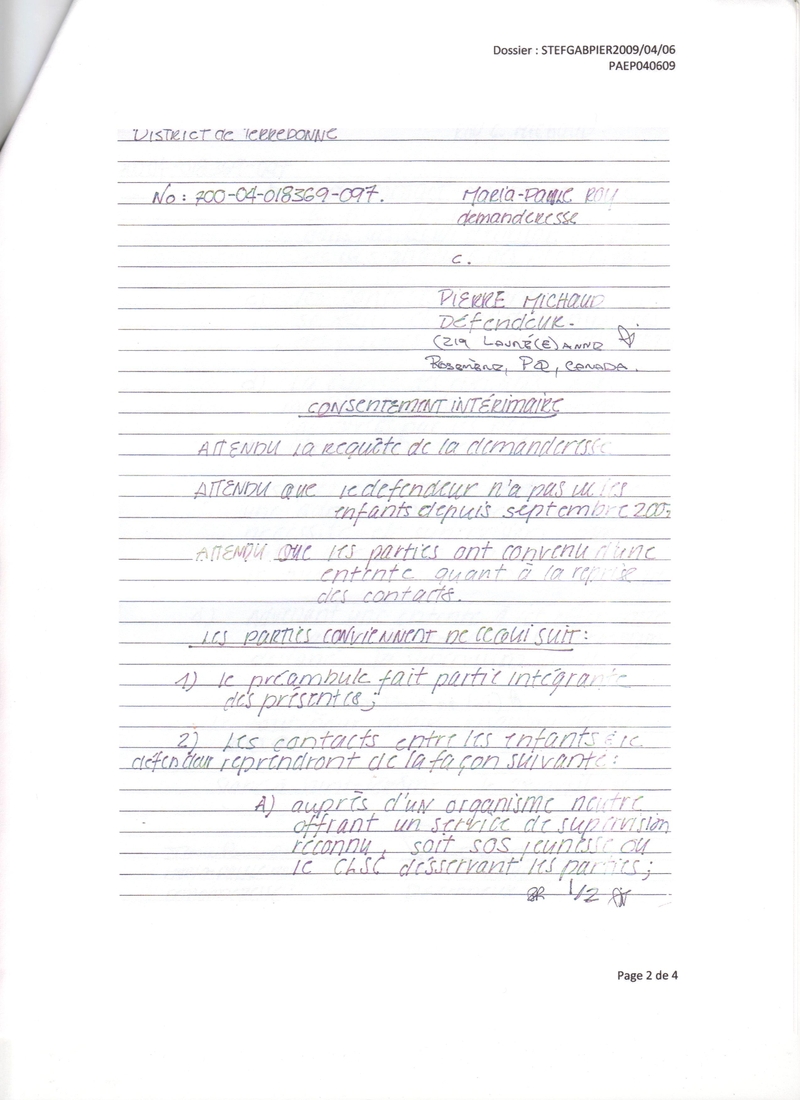 Dossier : STEFGABPIER2009/04/06
PAEP040609
DISTRICT de TERREBONNE
No : 700-04-018369-097.
MARIA-PAULE ROY
demanderesse
c.
PIERRE MICHAUD
DÉfendeur.
(219 LAURÉ(E)ANNE
Rosemère, PQ, CANADA.
CONSENTEMENT INTÉRIMAIRE
ATTENDU la requête de la demanderesse
ATTENDU que le défendeur n'a pas vu les
enfants depuis septembre
ATTENDU QUE les parties ont convenu d'une
entente quant à la reprise
des contacts.
LES PARTIES CONVIENNENT DE CE QUI SUIT :
1) le préambule fait partie intégrante
des présentes ;
2) les contacts entre les enfants & le
défendeur reprendront de la façon suivante :
A) auprès d'un organisme neutre
offrant un service de supervision
reconnu, soit SOS jeunesse ou
le CLSC desservant les parties ;
1/2
Page 2 de 4